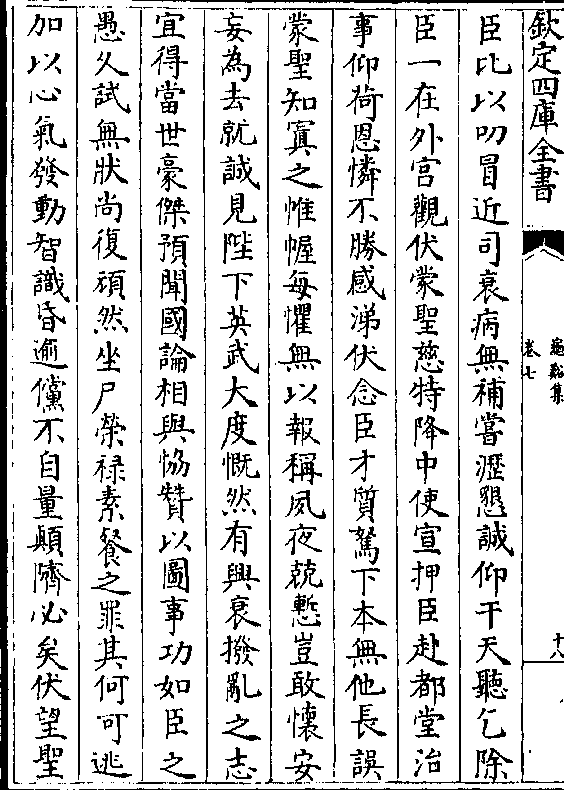 欽定四庫全書
龜谿集
卷七
十八
臣比以叨冒近司衰病無補嘗瀝懇誠仰干天聽乞除
臣一在外宮觀伏蒙聖慈特降中使宣押臣赴都堂治
事仰荷恩憐不勝感涕伏念臣才質駑下本無他長誤
蒙聖知寘之帷幄每懼無以報稱夙夜兢慙豈敢懷安
妄為去就誠見陛下英武大度慨然有興衰撥亂之志
宜得當世豪傑預聞國論相與恊贊以圖事功如臣之
愚久試無狀尚復頑然坐尸榮禄素餐之罪其何可逃
加以心氣發動智識昏逾儻不自量顛隮必矣伏望聖